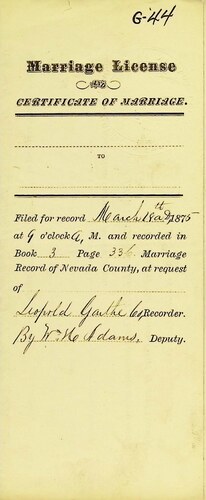 G-44
Marriage License
AND
CERTIFICATE OF MARRIAGE.
TO
Filed for record March 19th A.D. 1875
at 9 o'clock A, M. and recorded in
Book 3 Page 336 Marriage
Record of Nevada County, at request
of
Leopold Garthe Co, Recorder.
By Wm. H. Adams, Deputy.